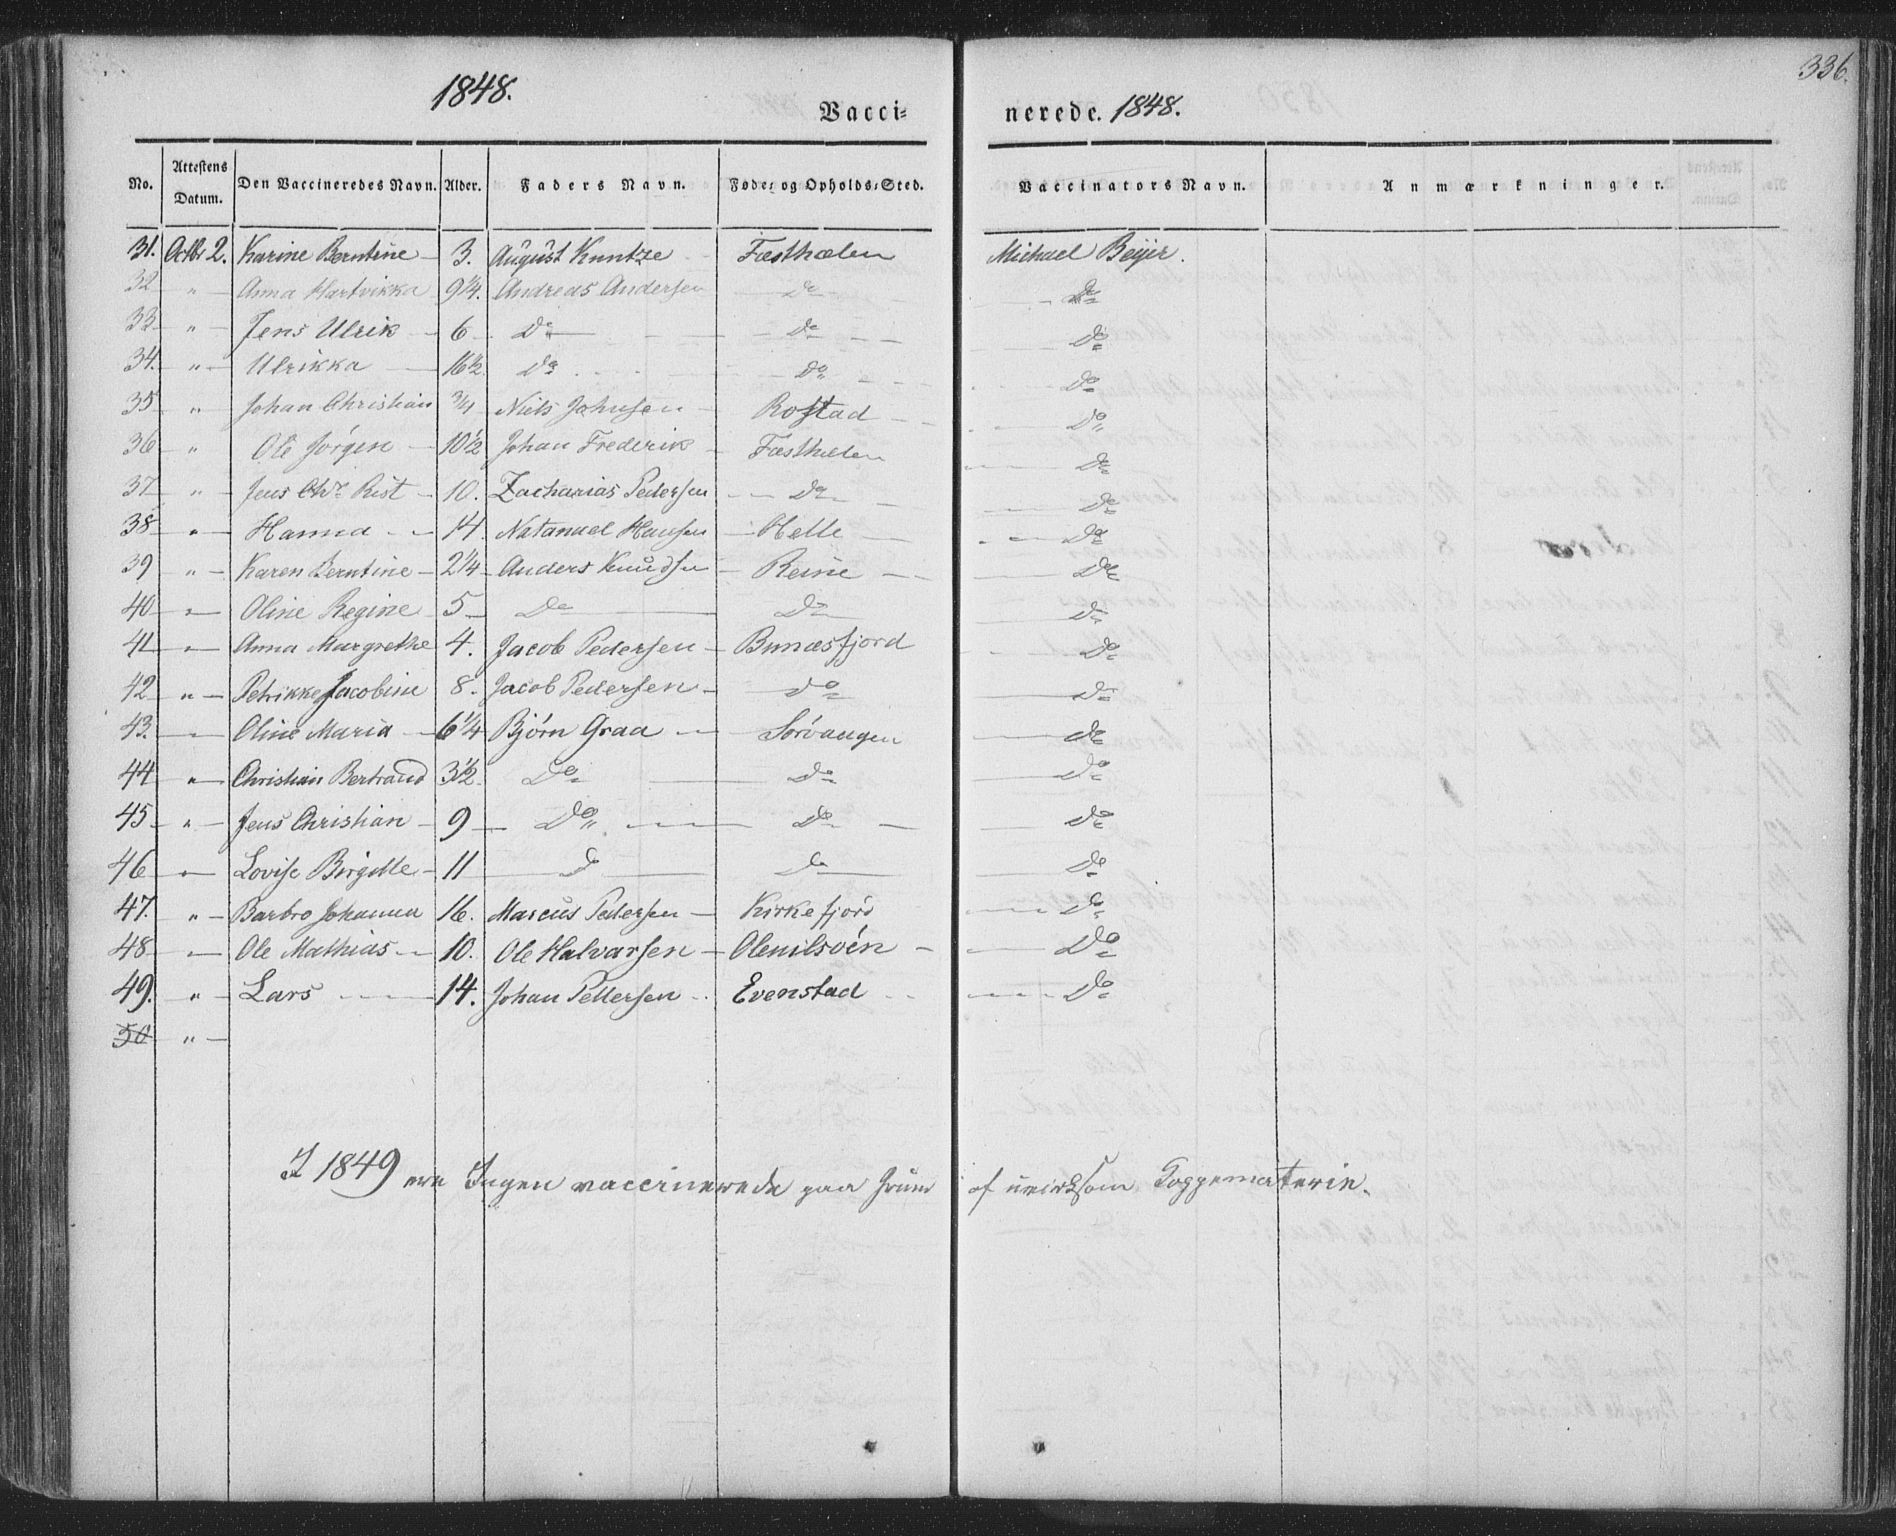 336.
1848. Vacci= nerede. 1848.
No. Attestens Datum. Den Vaccineredes Navn. Alder. Faders Navn. Føde= og Opholds=Sted. Vaccinators Navn. Anmærkninger.
31. Octbr 2. Karine Berntine 3. August Kuntze Fæsthælen Michael Beyer.
32 " Anna Hartvikka 9 1/4. Andreas Andersen Do Do
33 " Jens Ulrik 6 Do Do Do
34. " Ulrikka 16 1/2 Do Do Do
35 " Johan Christian 3/4 Niels Johnsen Rostad Do
36 " Ole Jørgen 10 1/2 Johan Frederik Fæsthælen Do
37 " Jens Chr. Rist 10. Zacharias Pedersen Do Do
38 " Hanna 14 Natanael Hansen Helle Do
39 " Karen Berntine 2 1/4 Anders Knudsen Reine Do
40 " Oline Regine 5 Do Do Do
41 " Anna Margrethe 4. Jacob Pedersen Bunæsfjord Do
42 " Petrikke Jacobine 8. Jacob Pedersen Do Do
43. " Oline Maria 6 1/4 Bjørn Graa Sørvaagen Do
44 " Christian Bertrand 3 1/2. Do Do Do
45 " Jens Christian 9 Do Do Do
46 " Lovise Birgitte 11 Do Do Do
47. " Barbro Johanna 16. Marcus Pedersen Kirkefjord Do
48 " Ole Mathias 10. Ole Halvarsen Olenilsvén Do
49. " Lars 14. Johan Pettersen Evenstad Do
50 "
I 1849 ere Ingen vaccinerede paa Grund af uvirksom Koppematerie.